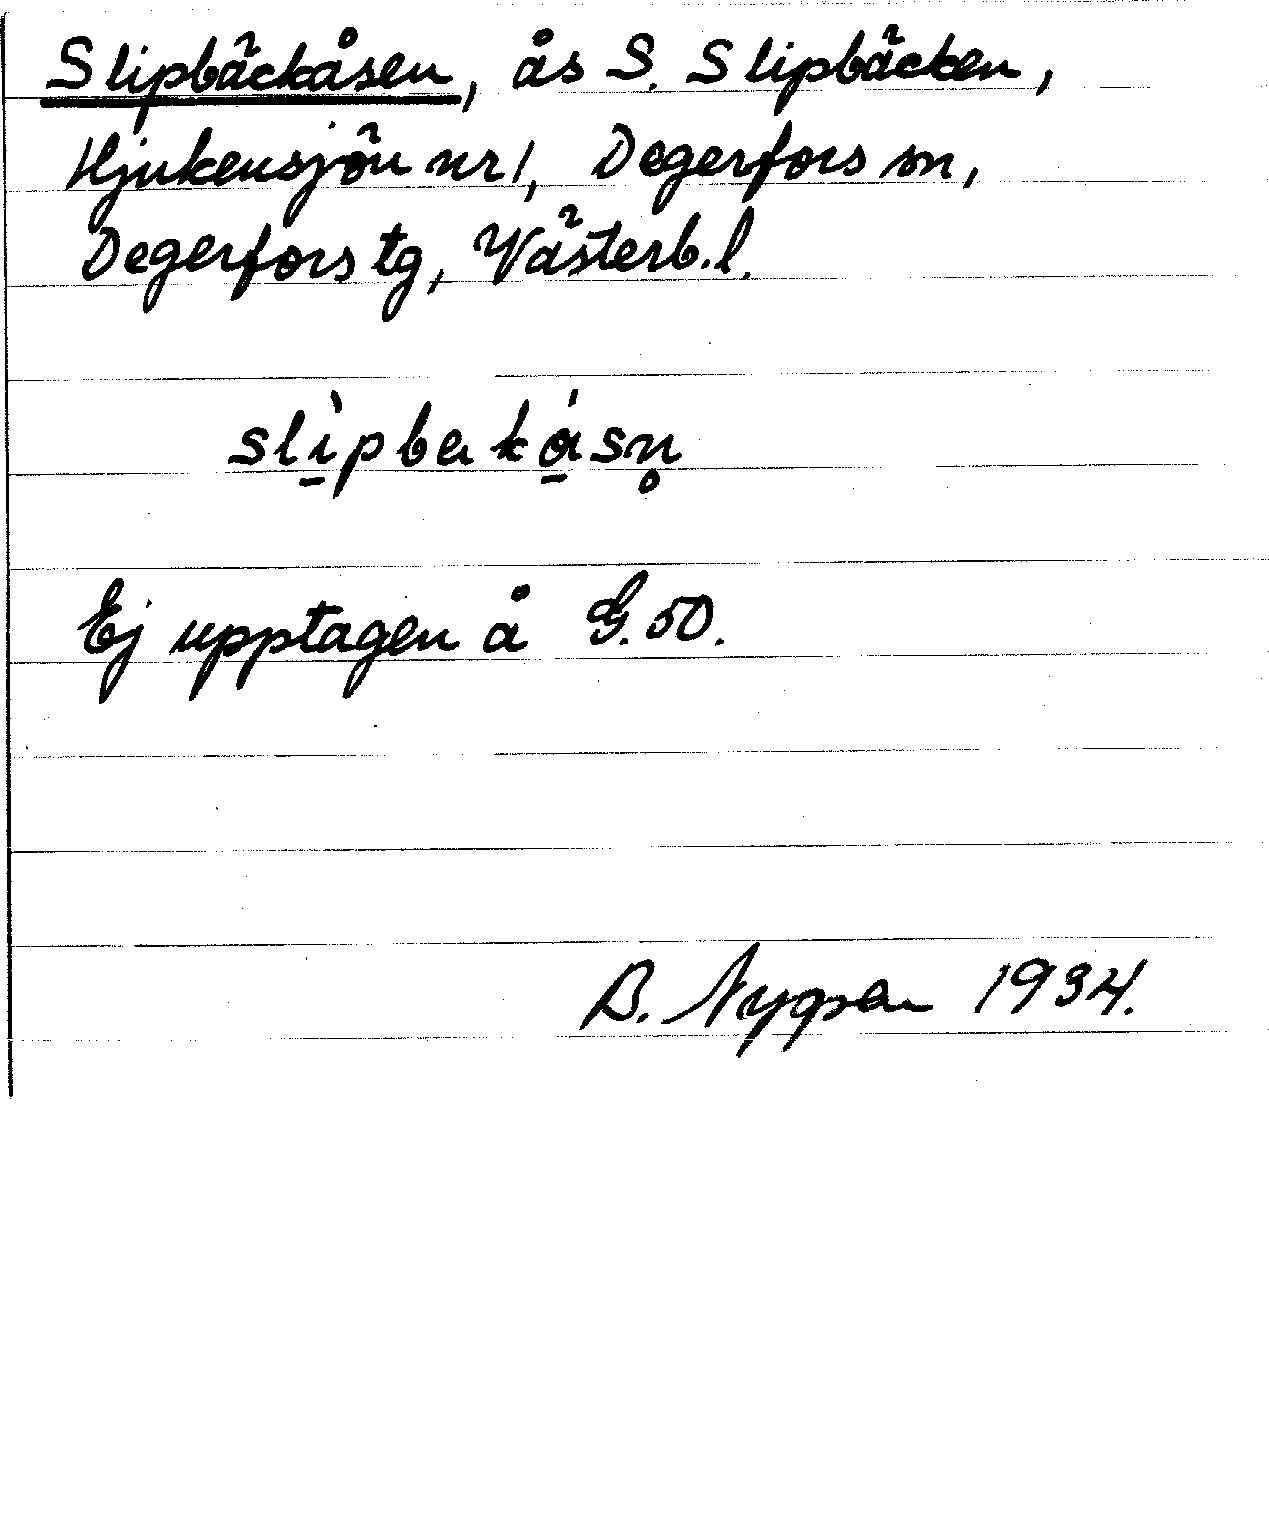 Slipbäckåsen, ås S. Slipbäcken,
Hjukensjön nr 1, Degerfors sn,
Degerfors tg, Västerb. l.
Ej upptagen å G. 50.
1934.